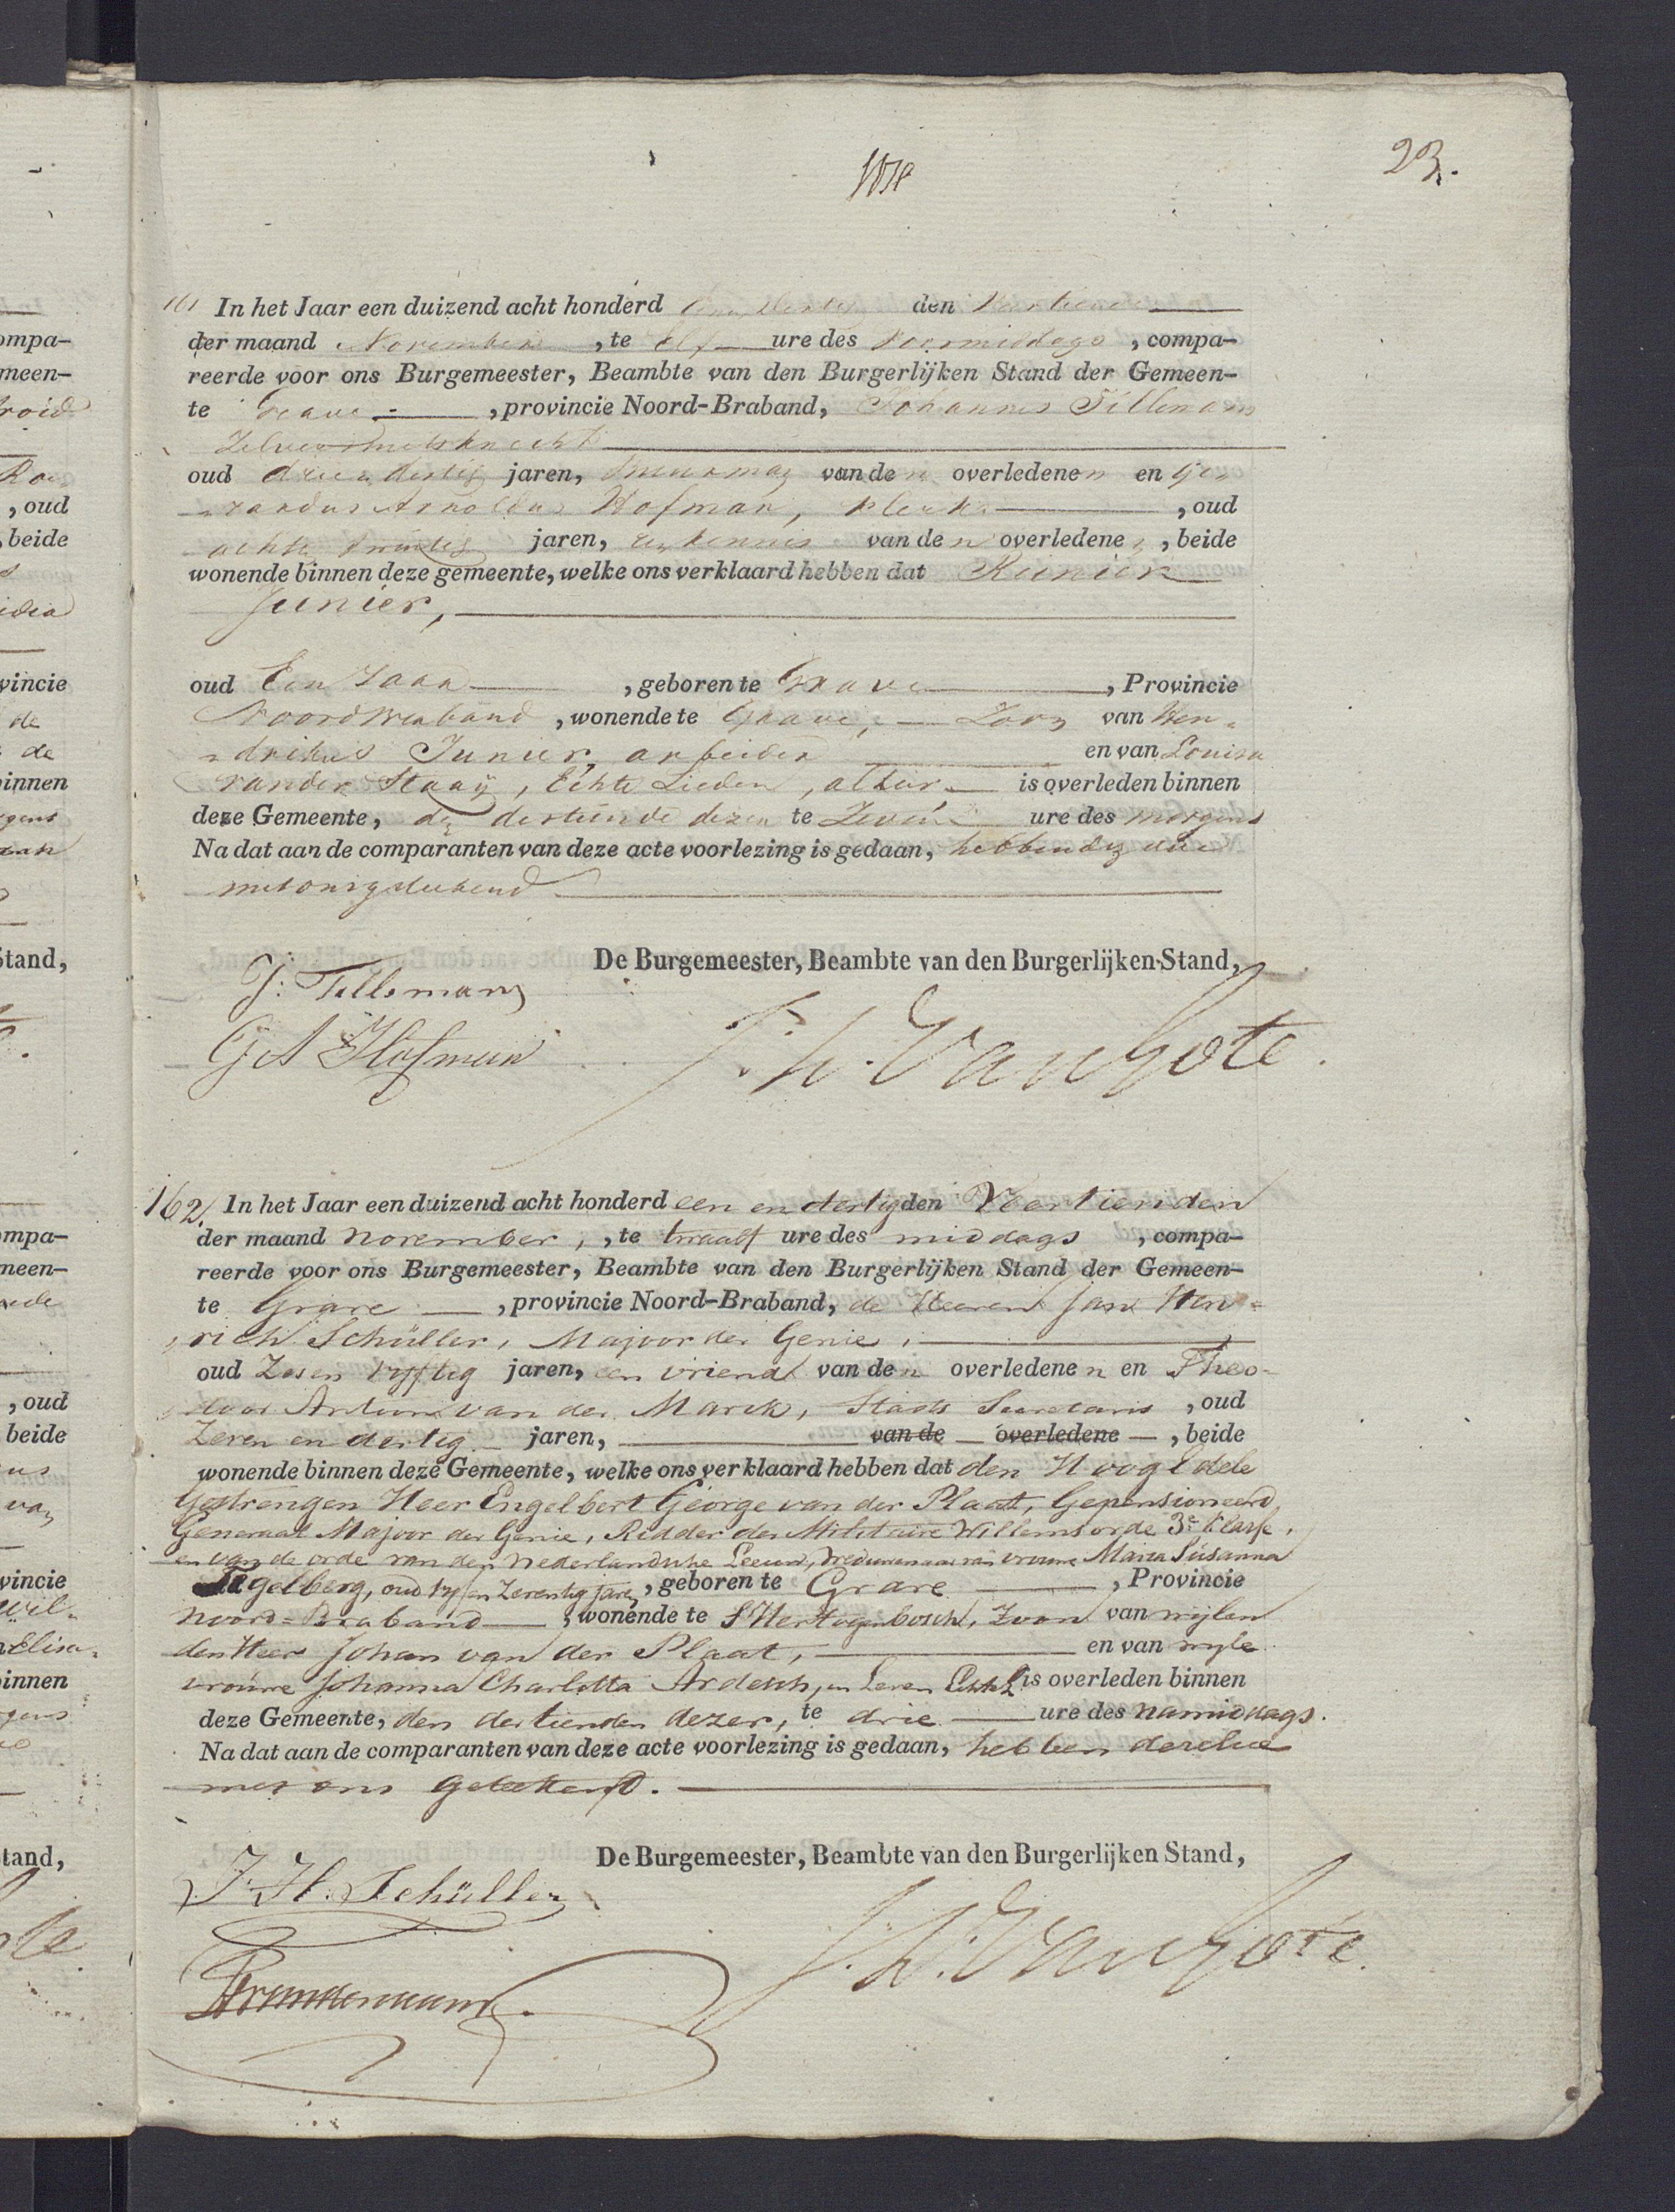 23.
161 In het Jaar een duizend acht honderd een en dertig den Veertiende
der maand November, te Elf ure des voormiddags, compa-
reerde voor ons Burgemeester, Beambte van den Burgerlijken Stand der Gemeen-
te Grave, provincie Noord-Braband, Johannes Tillemans
Zilversmitsknecht
oud drie en dertig jaren, van den overledenen en Ge-
rardus Arnoldus Hofman, klerk, oud
acht en twintig jaren, een kennis van den overledenen, beide
wonende binnen deze gemeente, welke ons verklaard hebben dat Reinier
Junier,
oud Een Jaar, geboren te Grave, Provincie
Noordbraband, wonende te Grave, Zoon van Hen-
drikus Junier, arbeider en van Louisa
van der Staaij, Echte Lieden, alhier, is overleden binnen
deze Gemeente, den dertiende dezer te Zeven ure des morgens
Na dat aan de comparanten van deze acte voorlezing is gedaan, hebben deze
met ons getekend
De Burgemeester, Beambte van den Burgerlijken Stand,
J: Tillemans
G A Hofman
162. In het Jaar een duizend acht honderd een en dertig den Veertienden
der maand November, , te twaalf ure des middags, compa-
reerde voor ons Burgemeester, Beambte van den Burgerlijken Stand der Gemeen-
te Grave, provincie Noord-Braband, de Heeren Jan Hen-
rich Schüller, Majoor der Genie,
oud Zes en vyftig jaren, een vriend van den overledenen en Theo-
door Antoon van der Marck, Stads Secretaris, oud
Zeven en dertig jaren, van de overledene, beide
wonende binnen deze Gemeente, welke ons verklaard hebben dat den HoogEdele
Gestrengen Heer Engelbert George van der Plaat, Gepensioneerd,
Generaal Majoor der Genie, Ridder der Militaire Willemsorde 3e klasse,
en van de orde van den Nederlandsche Leeuw, Weduwenaar van vrouwe Maria Susanna
Tegelberg, oud vyf en Zeventig jaren, geboren te Grave, Provincie
Noord-Braband, wonende te S'Hertogenbosch, Zoon van wijlen
den Heer Johan van der Plaat, en van wyle
vrouwe Johanna Charlotta Ardesch, in Leven Echtel. is overleden binnen
deze Gemeente, den dertienden dezer, te drie ure des namiddags.
Na dat aan de comparanten van deze acte voorlezing is gedaan, hebben dezelve
met ons getekend.
De Burgemeester, Beambte van den Burgerlijken Stand,
J. H. Schüller